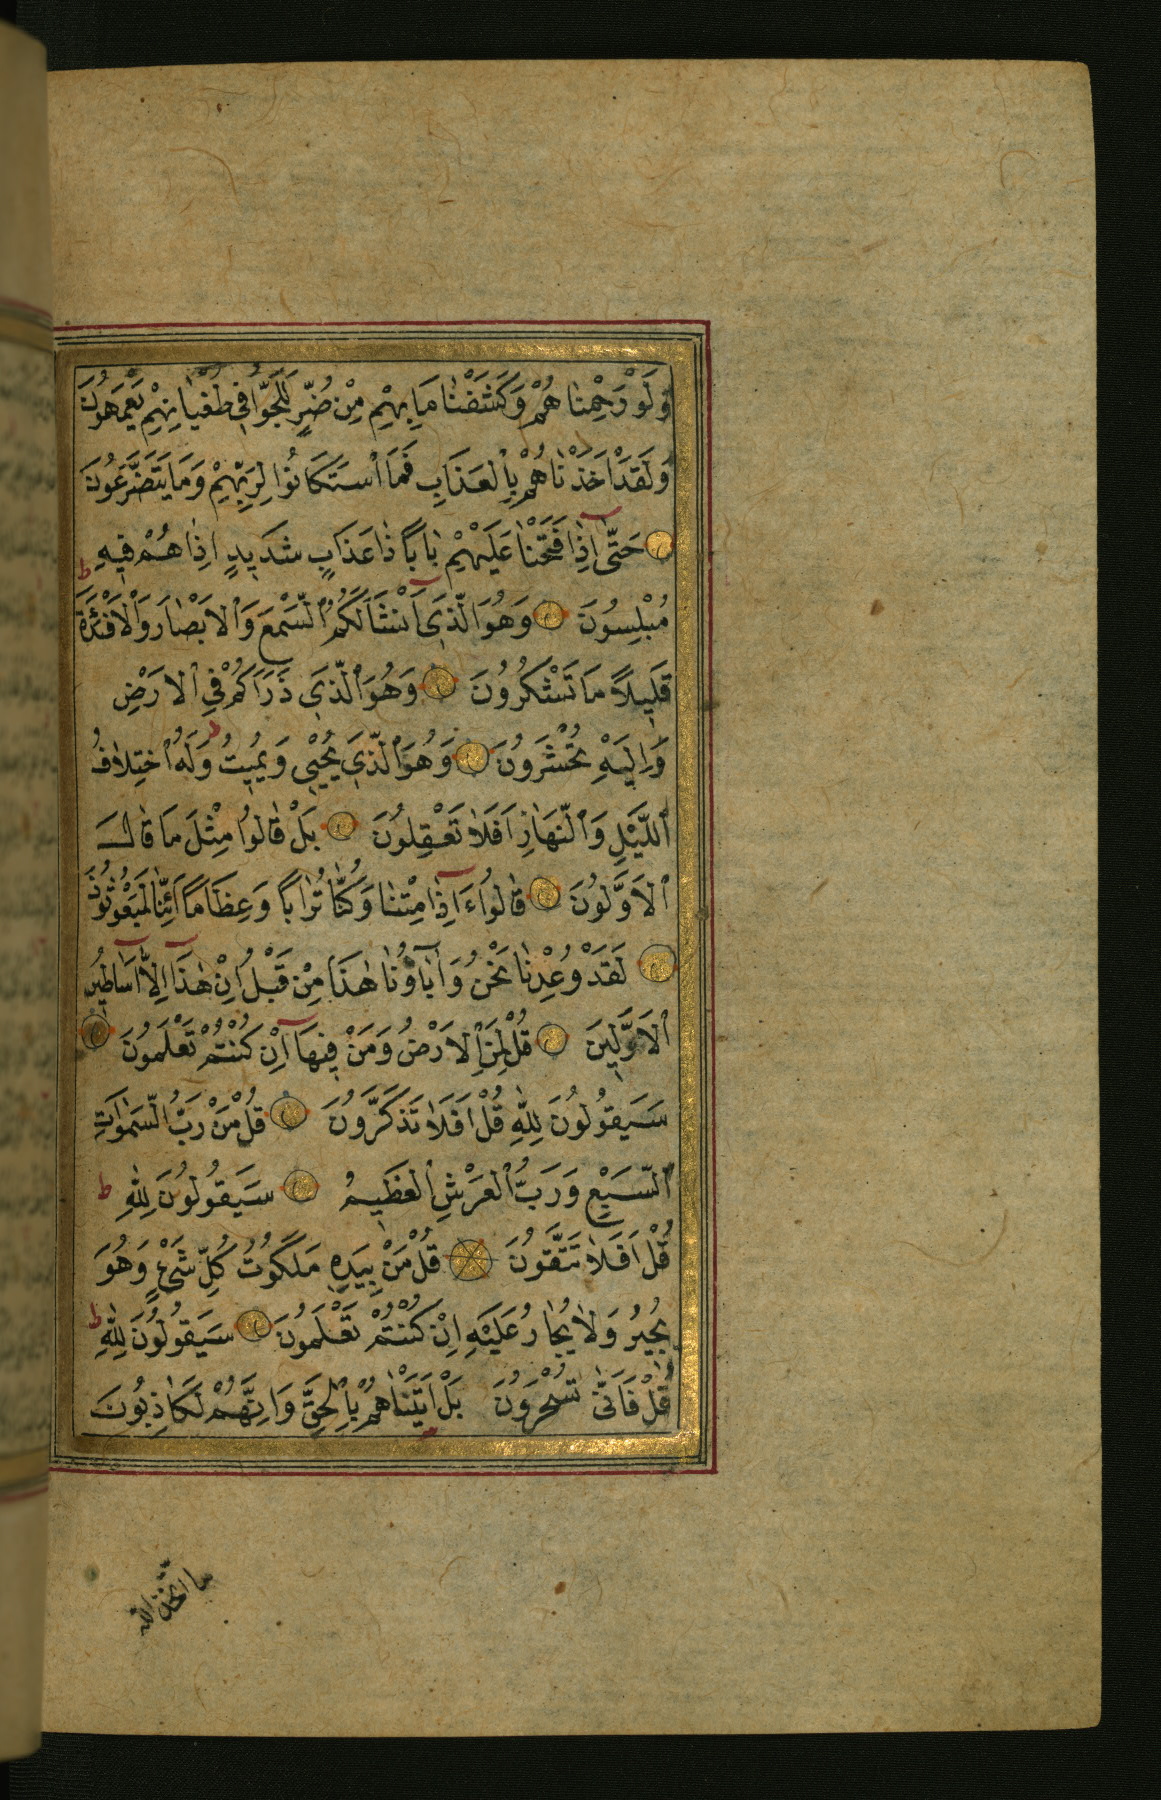 وَلَوْ رَحِمْنَا هُمْ وَكَشَفْنَا مَا بِهِمْ مِنْ ضُرٍّ لَلَجُّوا فِي طُغْيَانِهِمْ يَعْمَهُونَ
وَلَقَدْ اَخَذْنَا هُمْ بِالْعَذَابِ فَمَا اسْتَكَانُوا لِرَبِّهِمْ وَمَا يَتَضَرَّعُونَ
حَتّٰى اِذَا فَتَحْنَا عَلَيْهِمْ بَابًا ذَا عَذَابٍ شَدِيدٍ اِذَا هُمْ فِيهِ
مُبْلِسُونَ وَهُوَ الَّذِي اَنْشَاَ لَكُمُ السَّمْعَ وَالْاَبْصَارَ وَالْاَفْئِدَةَ ط
قَلِيلًا مَا تَشْكُرُونَ وَهُوَ الَّذِي ذَرَاَكُمْ فِي الْاَرْضِ
وَاِلَيْهِ تُحْشَرُونَ وَهُوَ الَّذِي يُحْيِي وَيُمِيتُ ط وَلَهُ اخْتِلَافُ
اللَّيْلِ وَالنَّهَارِ اَفَلَا تَعْقِلُونَ بَلْ قَالُوا مِثْلَ مَا قَالَ
الْاَوَّلُونَ قَالُوا ءَاِذَا مِتْنَا وَكُنَّا تُرَابًا وَعِظَامًا اَئِنَّا لَمَبْعُوثُونَ
لَقَدْ وُعِدْنَا نَحْنُ وَاٰبَاؤُنَا هٰذَا مِنْ قَبْلُ اِنْ هٰذَا اِلَّا اَسَاطِيرُ
الْاَوَّلِينَ قُلْ لِمَنِ الْاَرْضُ وَمَنْ فِيهَا اِنْ كُنْتُمْ تَعْلَمُونَ
سَيَقُولُونَ لِلّٰهِ قُلْ اَفَلَا تَذَكَّرُونَ قُلْ مَنْ رَبُّ السَّمٰوَاتِ
السَّبْعِ وَرَبُّ الْعَرْشِ الْعَظِيمِ سَيَقُولُونَ لِلّٰهِ ط
قُلْ اَفَلَا تَتَّقُونَ قُلْ مَنْ بِيَدِهِ مَلَكُوتُ كُلِّ شَيْءٍ وَهُوَ
يُجِيرُ وَلَا يُجَارُ عَلَيْهِ اِنْ كُنْتُمْ تَعْلَمُونَ سَيَقُولُونَ لِلّٰهِ ط
قُلْ فَاَنّٰى تُسْحَرُونَ بَلْ اَتَيْنَاهُمْ بِالْحَقِّ وَاِنَّهُمْ لَكَاذِبُونَ
ما اتخذ الله